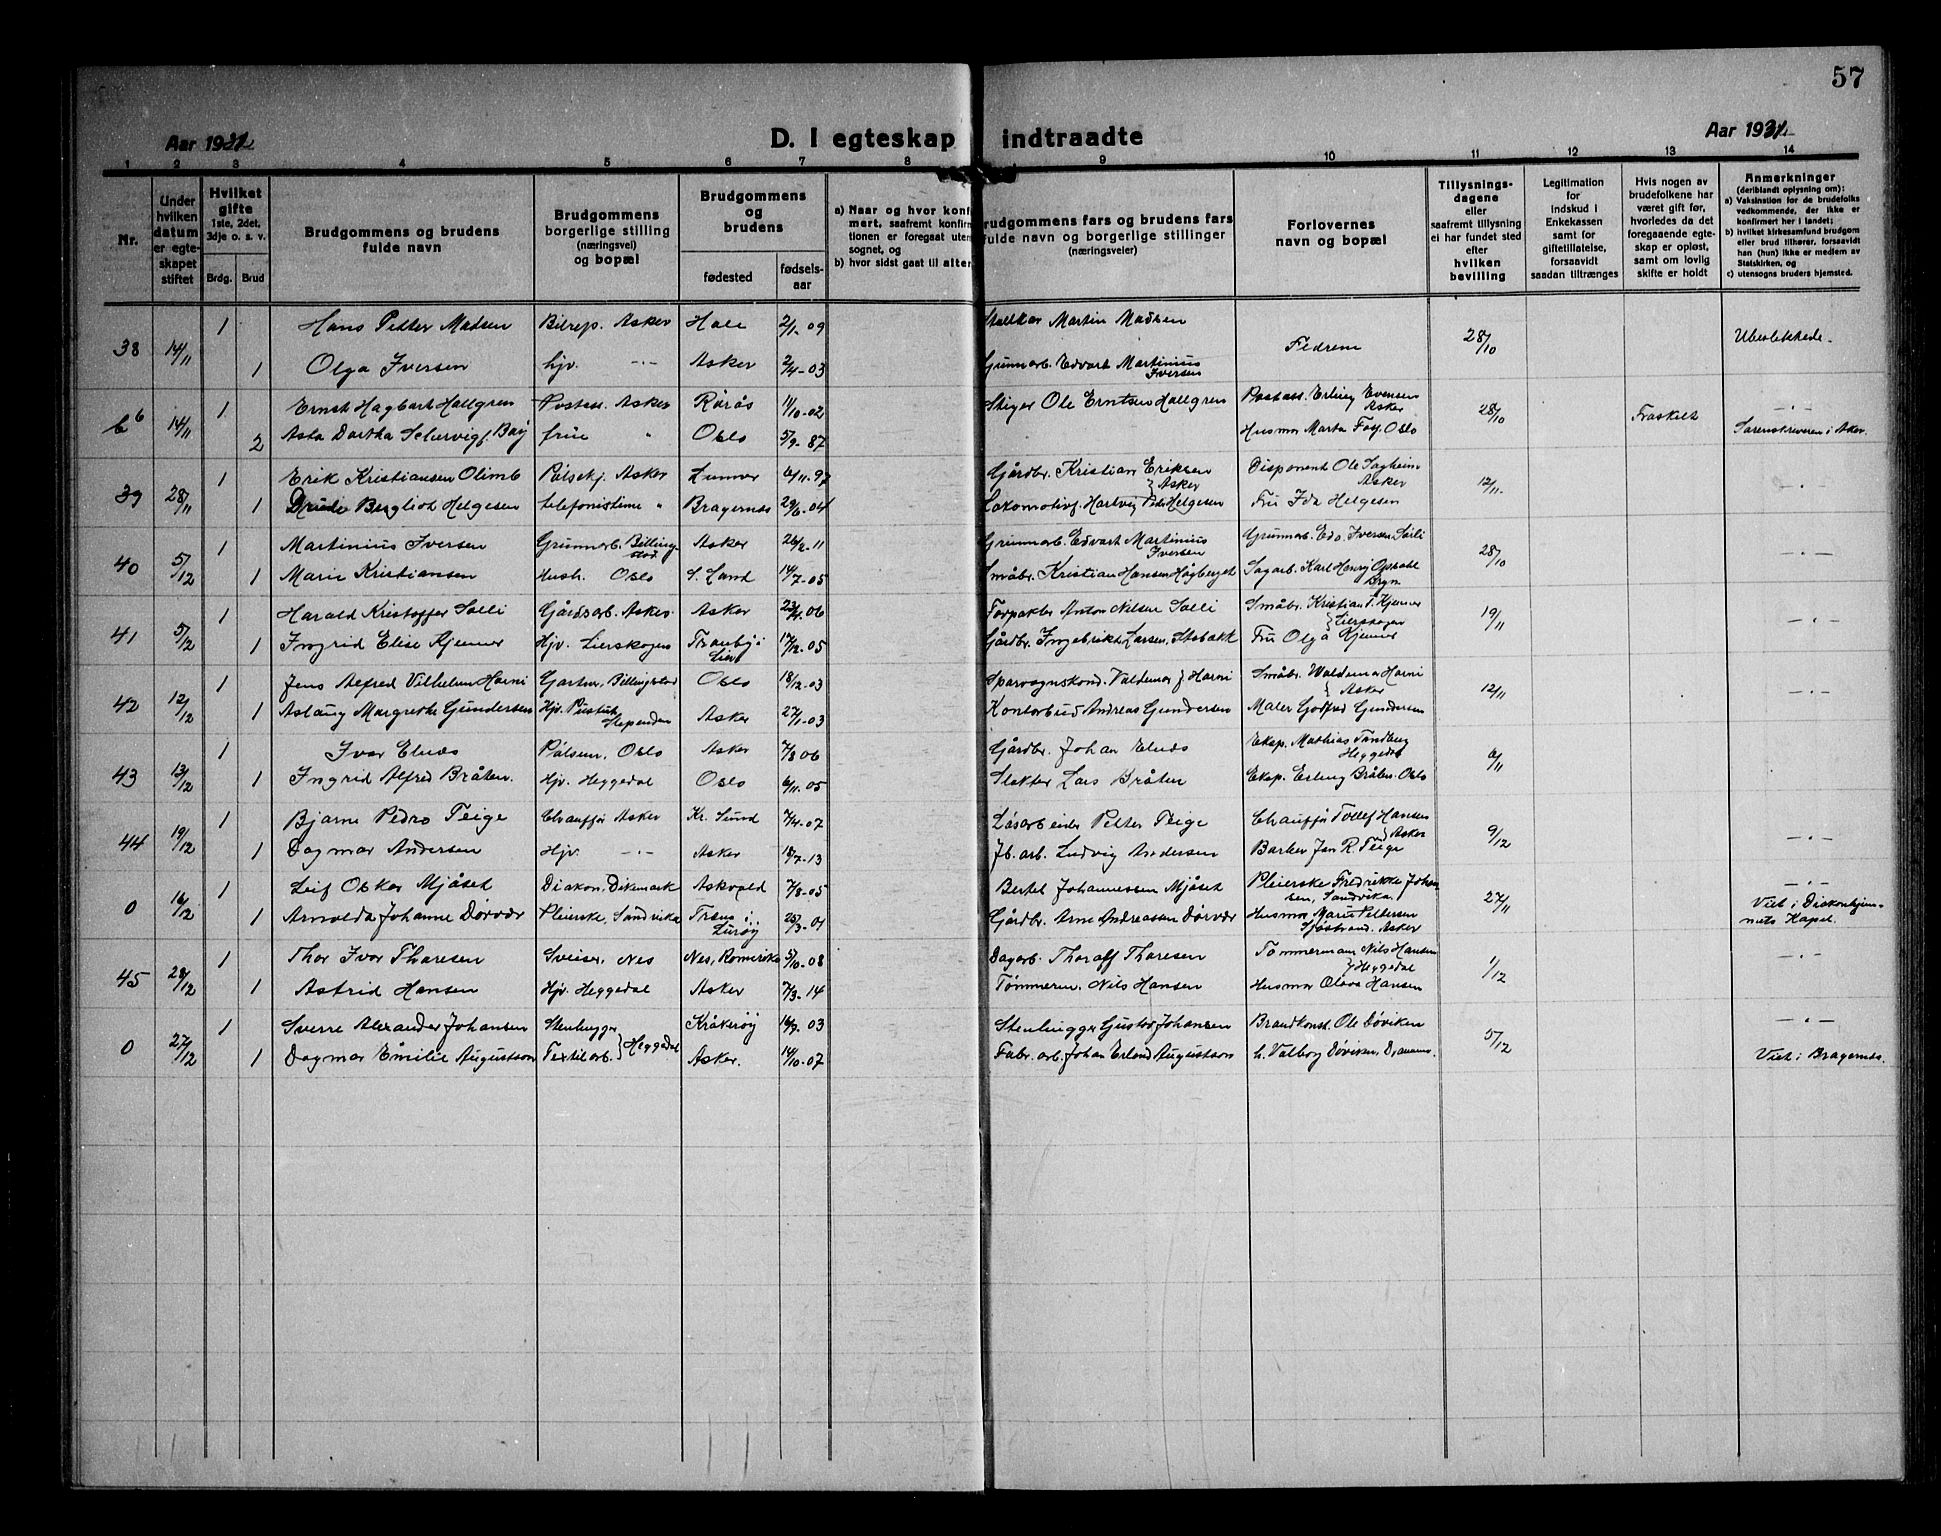 57
Aar 1931
D. I egteskap indtraadte
Aar 1931
1 2 3 4 5 6 7 8 9 10 11 12 13 14
Nr.
Under hvilken datum er egteskapet stiftet
Hvilket gifte 1ste, 2det, 3dje o. s. v.
Brdg. Brud
Brudgommens og brudens fulde navn
Brudgommens borgerlige stilling (næringsvei) og bopæl
Brudgommens og brudens
fødested fødselsaar
a) Naar og hvor konfirmert, saafremt konfirmationen er foregaat utensognet, og
b) hvor sidst gaat til alters
Brudgommens fars og brudens fars fulde navn og borgerlige stillinger (næringsveier)
Forlovernes navn og bopæl
Tillysningsdagene eller saafremt tillysning ei har fundet sted efter hvilken bevilling
Legitimation for indskud i Enkekassen samt for giftetillatelse, forsaavidt saadan tiltrænges
Hvis nogen av brudefolkene har været gift før, hvorledes da det foregaaende egteskap er opløst, samt om lovlig skifte er holdt
Anmerkninger (deriblandt oplysning om):
a) Vaksination for de brudefolks vedkommende, der ikke er konfirmert her i landet;
b) hvilket kirkesamfund brudgom eller brud tilhører, forsaavidt han (hun) ikke er medlem av Statskirken, og
c) utensogns bruders hjemsted.
38 14/11 1 Hans Petter Madsen Bilrep. Asker Hole 2/1-09 Martin Madsen Fedrene 28/10 Ubeslektede
1 Olga Iversen hjv. -"- Asker 2/4-03 Grunnarb. Edvart Martinius Iversen
b6 14/11 1 Ernst Hagbart Hallgren Postass. Asker Røros 11/10-02 Stiger Ole Erntsen Hallgren Postass. Erling Evensen Asker 28/10 Fraskilt -"-
2 Asta Dortha f. Boij frue " Oslo 5/9-87 Husmor Marta Oslo Sorenskriveren i Aker.
39 28/11 1 Erik Kristiansen Olimb Pølsekj. Asker Lunner 4/11-97 Gårdbr. Kristian Eriksen Asker Disponent Ole Sagheim Asker 12/11 -"-
1 Bergliot Helgesen telefonistinne " Bragernes 29/6-04 Lokomotivf. Hartvig Helgesen Fru Ida Helgesen
40 5/12 1 Martinius Iversen Grunnarb. Billingstad Asker 26/2-11 Grunnarb. Edvart Martinius Iversen Grunnarb. Edv. Iversen 28/10 -"-
1 Marie Kristiansen Hush. Oslo S. Land 14/7-05 Småbr. Kristian Hansen Høgberget Sagarb. Karl Henry
41 5/12 1 Harald Kristoffer Solli Gårdsarb. Asker Asker 06 Forpakter Anton Nilsen Solli Småbr. Kristian T. Kjenner Lierskogen 19/11 -"-
1 Ingrid Elise Kjenner Hjv. Lierskogen Tranby i Lier 17/12-05 Gårdbr. Ingebrikt Larsen Stabekk Fru Olga Kjenner
42 12/12 1 Jens Alfred Vilhelm Harni Gartner, Billingstad Oslo 18/2-03 Sporvognskond. Valdemar Harni Småbr. Waldemar Harni Asker 12/11 -"-
1 Aslaug Margrethe Gundersen Hjv. Hvalstad Asker 27/1-03 Kontorbud Andreas Gundersen Maler Godfred Gundersen
43 13/12 1 Ivar Elnes Pølsem. Oslo Asker 7/8 06 Gårdbr. Johan Elnes Eksp. Mathias Tandberg Heggedal 6/11
1 Ingrid Alfred Bråten. Hjv. Heggedal Oslo 6/11-05 Slakter Lars Bråten Eksp. Erling Bråten. Oslo
44 19/12 1 Bjarne Pedro Teige Chauffør Asker Kr. Sund 7/4-07 Løsarbeider Petter Teige Chauffør Tollef Hansen Asker 9/12 -"-
1 Dagmar Andersen Hjv. -"- Asker 18/7-13 Jb. arb. Ludvig Andersen Barber Jan R. Teige
0 16/12 1 Leif Oskar Mjåset Diakon, Dikemark Askvold 7/8-05 Bertel Johannessen Mjåset Pleierske Fredrikke Johansen, Sandvika. 27/11 -"-
1 Arnolda Johanne Dørvær Pleierske, Sandvika Træna i Lurøy 25/3-01 Gårdbr. Arne Andreasen Dørvær Husmor Marie Pettersen Sjøstrand. Asker Viet i Diakonhjemmets Kapel.
45 28/12 1 Thor Ivar Thoresen Sveiser, Nes Nes, Romerike 5/10-08 Dagarb. Thoralf Thoresen Tømmermann Nils Hansen Heggedal 1/12 -"-
1 Astrid Hansen Hjv. Heggedal Asker 7/3-14 Tømmerm. Nils Hansen Husmor Olava Hansen
0 27/12 1 Sverre Alexander Johansen Stenhugger Heggedal Kråkerøy 16/9-03 Stenhugger Gustav Johansen Brandkonst. Ole Døviken 5/12 -"-
1 Dagmar Emilie Augustson Textilarb. Asker. 14/10-07 Fabr. arb. Johan Erland Augustson h. Valborg Døviken, Drammen. Viet i Bragernes.